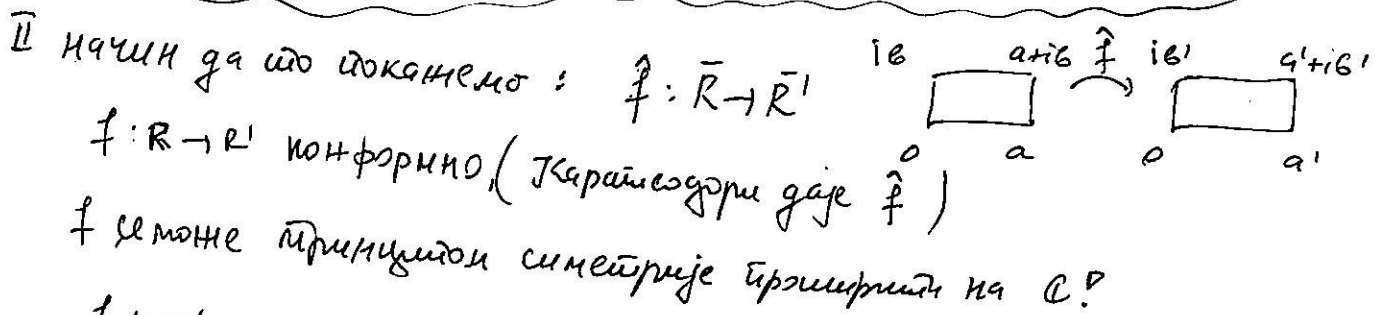 II начин да то покажемо : f̂ : R̄ → R̄'
iб a+iб f̂ iб' a'+iб'
0 a 0 a'
f : R → R' конформно, (Каратеодори даје f̂ )
f се може принципом симетрије проширити на ℂ!